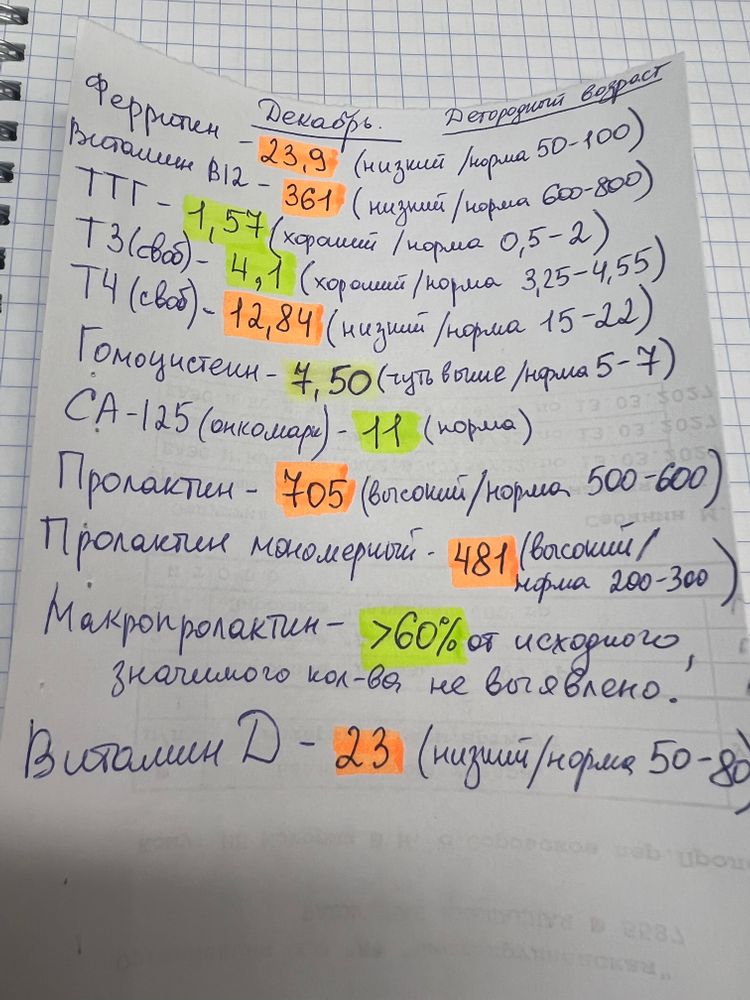 Декабрь. Детородный возраст
Ферритин - 23,9 (низкий/норма 50-100)
Витамин В12 - 361 (низкий/норма 600-800)
ТТГ - 1,57 (хороший/норма 0,5-2)
Т3(своб) - 4,1 (хороший/норма 3,25-4,55)
Т4(своб) - 12,84 (низкий/норма 15-22)
Гомоцистеин - 7,50 (чуть выше/норма 5-7)
СА-125 (онкомарк) - 11 (норма)
Пролактин - 705 (высокий/норма 500-600)
Пролактин мономерный - 481 (высокий/
норма 200-300)
Макропролактин - >60% от исходного,
значимого кол-ва не выявлено.
Витамин D - 23 (низкий/норма 50-80)